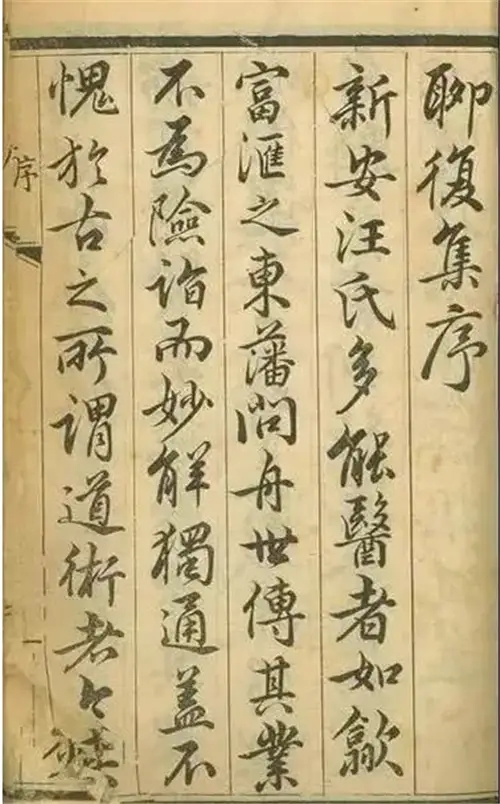 聊復集序
新安汪氏多能醫者如歙
富滙之東藩問舟世傳其業
不為險詣而妙解獨通蓋不
愧於古之所謂道術者
序
一